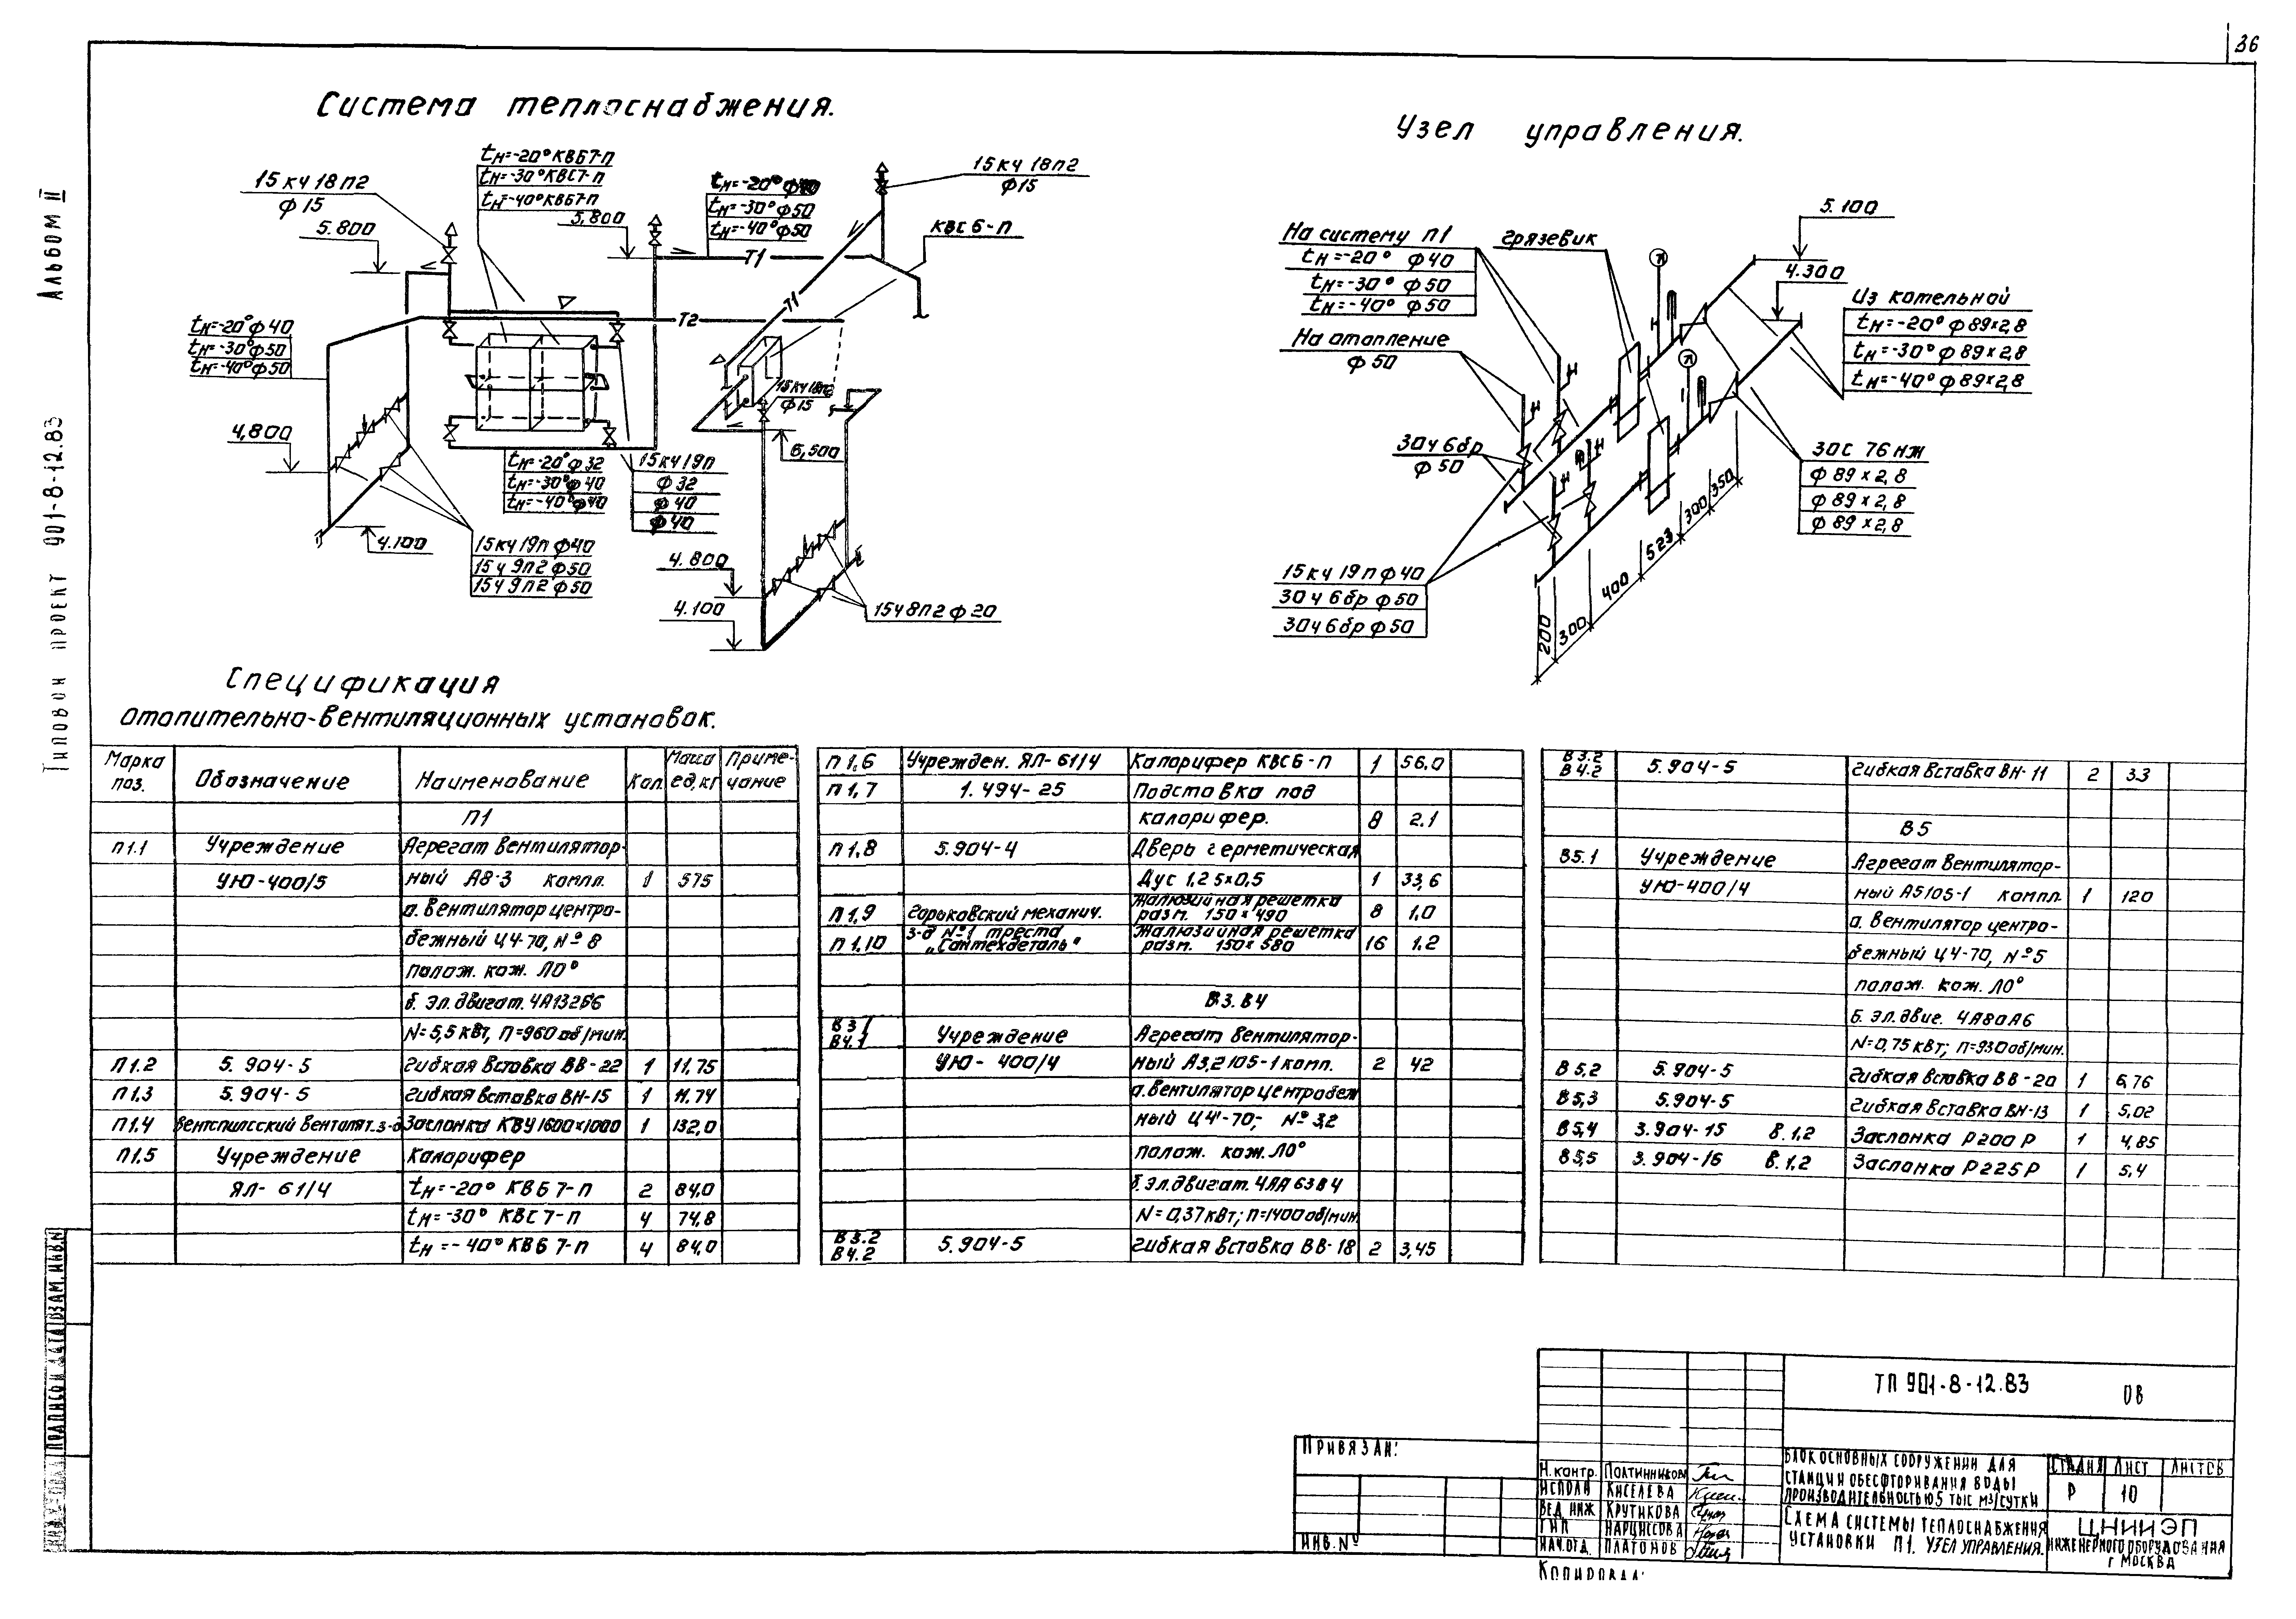 36
Альбом II
Типовой проект 901-8-12.83
Система теплоснабжения.
15кч18п2
ф15
5.800
tн=-20° КВБ7-п
tн=-30° КВС7-п
tн=-40° КВБ7-п
5,800
tн=-20° ф40
tн=-30° ф50
tн=-40° ф50
15кч18п2
ф15
КВС6-п
Т1
Т1
Т2
tн=-20° ф40
tн=-30° ф50
tн=-40° ф50
4,800
4.100
15кч19п ф40
15ч9п2 ф50
15ч9п2 ф50
tн=-20° ф32
tн=-30° ф40
tн=-40° ф40
15кч19п
ф32
ф40
ф40
15кч18п2
ф15
6,500
4.800
4.100
15ч8п2 ф20
Узел управления.
На систему п1
tн=-20° ф40
tн=-30° ф50
tн=-40° ф50
грязевик
5.100
4.300
Из котельной
tн=-20° ф89×2,8
tн=-30° ф89×2,8
tн=-40° ф89×2,8
На отопление
ф50
30ч6бр
ф50
30с 76нж
ф89×2,8
ф89×2,8
ф89×2,8
15кч19п ф40
30ч6бр ф50
30ч6бр ф50
200
300
400
523
300
350
Спецификация
отопительно-вентиляционных установок.
Марка поз. Обозначение Наименование Кол. Масса ед,кг Примечание
П1
П1.1 Учреждение Агрегат вентилятор-
УЮ-400/5 ный А8-3 компл. 1 575
а. Вентилятор центро-
бежный Ц4-70, №8
полож. кож. Л0°
б. эл.двигат. 4А132Б6
N=5,5 кВт, п=960 об/мин.
П1.2 5.904-5 Гибкая вставка ВВ-22 1 11,75
П1.3 5.904-5 Гибкая вставка ВН-15 1 11.74
П1.4 Вентспилсский вентилят.з-д Заслонка КВУ1600×1000 1 132,0
П1.5 Учреждение Калорифер
ЯЛ-61/4 tн=-20° КВБ7-п 2 84,0
tн=-30° КВС7-п 4 74,8
tн=-40° КВБ7-п 4 84,0
П1,6 Учрежден. ЯЛ-61/4 Калорифер КВС6-п 1 56.0
П1,7 1.494-25 Подставка под
калорифер. 8 2.1
П1,8 5.904-4 Дверь герметическая
Дус 1,25×0,5 1 33,6
П1,9 Горьковский механич. Жалюзийная решетка разм. 150×490 8 1,0
П1,10 з-д №1 треста „Сантехдеталь" Жалюзийная решетка разм. 150×580 16 1.2
В3. В4
В3.1 В4.1 Учреждение Агрегат вентилятор-
УЮ-400/4 ный А3,2105-1 комп. 2 42
а. Вентилятор центробеж
ный Ц4-70; №3,2
полож. кож. Л0°
б. эл.двигат. 4АА63В4
N=0,37кВт; п=1400 об/мин.
В3.2 В4.2 5.904-5 Гибкая вставка ВВ-18 2 3,45
В3.2 В4.2 5.904-5 Гибкая вставка ВН-11 2 3.3
В5
В5.1 Учреждение Агрегат вентилятор-
УЮ-400/4 ный А5105-1 компл. 1 120
а. Вентилятор центро-
бежный Ц4-70, №5
полож. кож. Л0°
б. эл.двиг. 4А80А6
N=0,75 кВт; п=930об/мин.
В5,2 5.904-5 Гибкая вставка ВВ-20 1 6,76
В5,3 5.904-5 Гибкая вставка ВН-13 1 5,02
В5,4 3.904-15 в.1,2 Заслонка Р200Р 1 4,85
В5,5 3.904-16 в.1,2 Заслонка Р225Р 1 5,4
Подпись и дата
Взам. инв.№
Привязан:
Инв.№
ТП 901-8-12.83 ОВ
Н.контр. Полтинникова
Исполн Киселева
Вед.инж Крутикова
ГИП Нарциссова
Нач.отд. Платонов
Блок основных сооружений для
станции обесфторивания воды
производительностью 5 тыс м3/сутки
Стадия Лист Листов
Р 10
Схема системы теплоснабжения
установки П1. Узел управления.
ЦНИИЭП
инженерного оборудования
г Москва
Копировал: